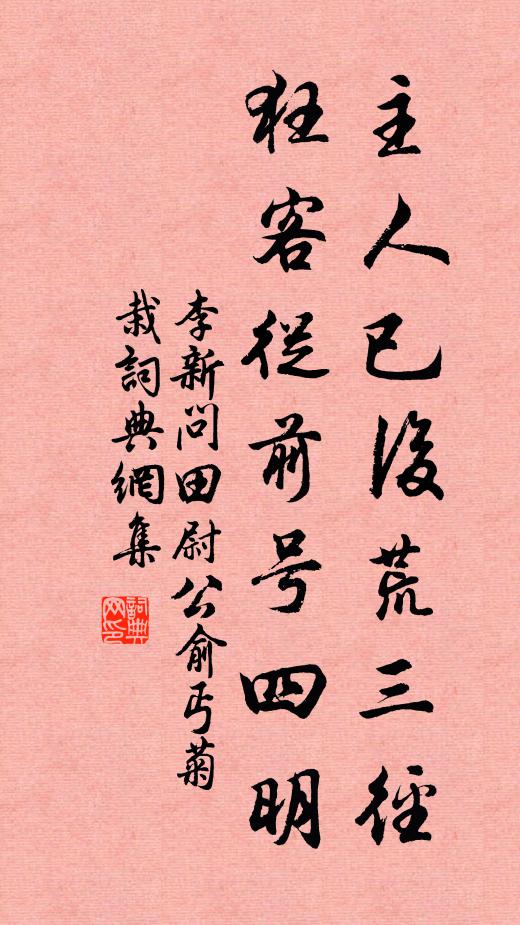 主人已後荒三徑
狂客從前号四明
李新問田尉公俞丐菊
栽詞典網集
詞典网印